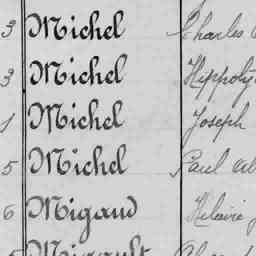 3 Michel Charles
3 Michel Hippoly
1 Michel Joseph
5 Michel Paul
6 Migaud Hilaire
5 Migault